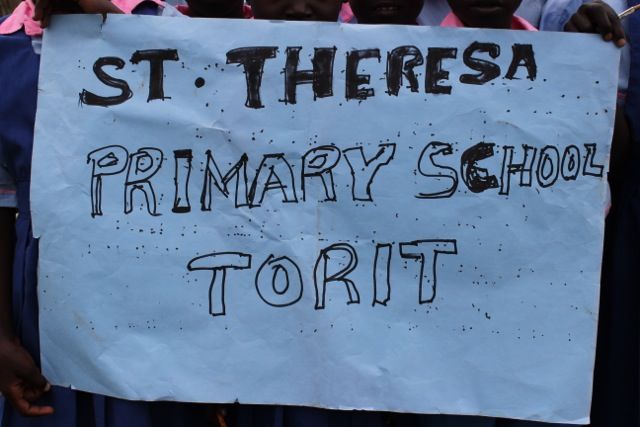 ST. THERESA
PRIMARY SCHOOL
TORIT